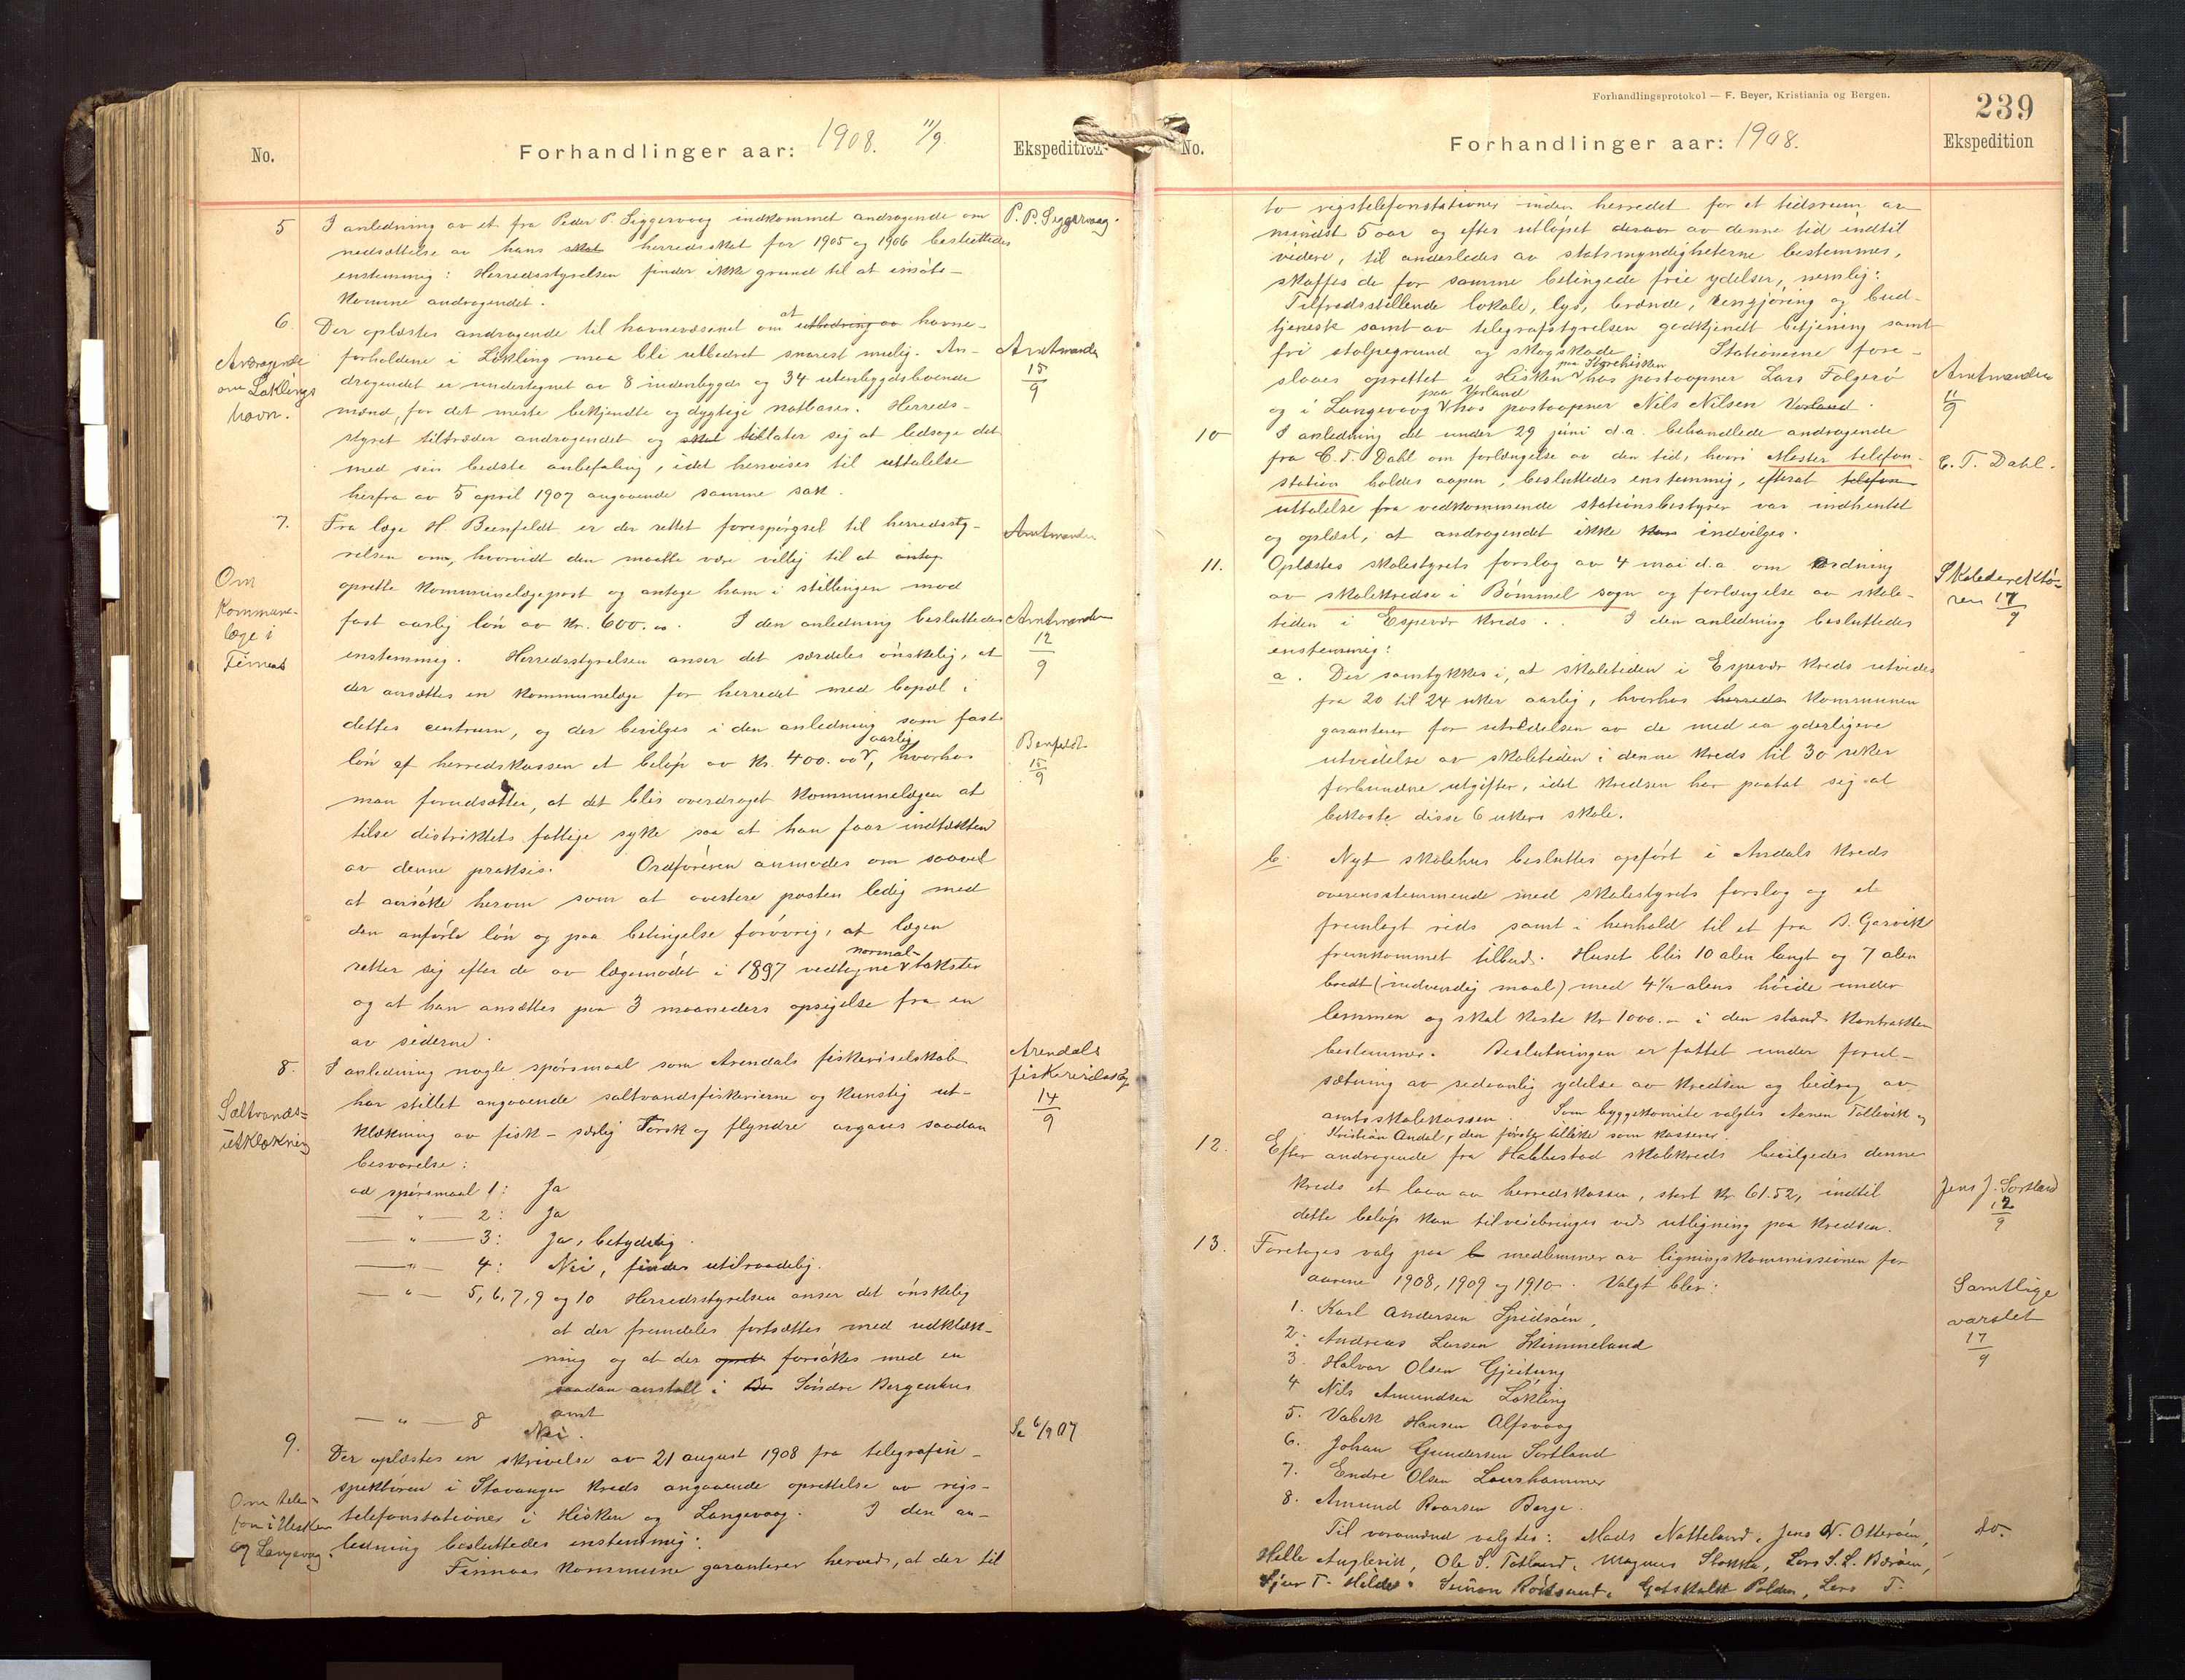 No.
Forhandlinger aar: 1908. 11/9.
Ekspedition
5 I anledning av et fra Peder P. Siggervaag indkommet andragende om
nedsættelse av hans skat herredsskat for 1905 og 1906 besluttedes
enstemmig: Herredsstyrelsen finder ikke grund til at imøte-
komme andragendet.
P. P. Siggervaag.
6. Der oplæstes andragende til havnevæsenet om at utbedring av havne-
forholdene i Løkling maa bli utbedret snarest mulig. An-
dragendet er undertegnet av 8 indenbygds og 34 utenbygdsboende
mænd, for det meste bekjendte og dygtige notbaser. Herreds-
styret tiltræder andragendet og skal tillater sig at ledsage det
med sin bedste anbefaling, idet henvises til uttalelse
herfra av 5 april 1907 angaaende samme sak.
Andragende
om Løklings
havn.
Amtmanden
15
9
7. Fra læge H. Beenfeldt er der rettet forespørgsel til herredssty-
relsen om, hvorvidt den maatte være villig til at antag
oprette kommunelægepost og antage ham i stillingen mod
fast aarlig løn av kr. 600.00. I den anledning besluttedes
enstemmig. Herredsstyrelsen anser det særdeles ønskelig, at
der ansættes en kommunelæge for herredet med bopæl i
dettes centrum, og der bevilges i den anledning som fast
løn af herredskassen et beløp av kr. 400.00 aarlig, hvorhos
man forudsætter, at det blir overdraget kommunelægen at
tilse distriktets fattige syke saa at han faar indtækten
av denne praksis. Ordføreren anmodes om saavel
at ansøke herom som at avertere posten ledig med
den anførte løn og paa betingelse forøvrig, at lægen
retter sig efter de av lægemødet i 1897 vedtagne normal-takster
og at han ansættes paa 3 maaneders opsigelse fra en
av siderne.
Om
Kommune-
læge i
Finnaas
Amtmanden
Amtmanden
12
9
Benfeldt
15
9
8. I anledning nogle spørsmaal som Arendals fiskeriselskab
har stillet angaaende saltvandsfiskerierne og kunstig ut-
klækning av fisk – særlig Torsk og flyndre avgaves saadan
besvarelse:
ad spørsmaal 1: Ja
— " — 2: Ja
— " — 3: Ja, betydelig.
— " — 4: Nei, findes utilraadelig.
— " — 5, 6, 7, 9 og 10 Herredsstyrelsen anser det ønskelig
at der fremdeles fortsættes med utklæk-
ning og at der oprett forsøkes med en
saadan anstalt i Be Søndre Bergenhus
amt
— " — 8 Nei.
Saltvands-
utklækning
Arendals
fiskeriselskap
14
9
9. Der oplæstes en skrivelse av 21 august 1908 fra telegrafin-
spektøren i Stavanger kreds angaaende oprettelse av rigs-
telefonstationer i Hisken og Langevaag. I den an-
ledning besluttedes enstemmig:
Finnaas kommune garanterer herved, at der til
Om tele-
fon i Hisken
og Langevaag.
Se 6/9 07
Forhandlingsprotokol — F. Beyer, Kristiania og Bergen.
239
No.
Forhandlinger aar: 1908.
Ekspedition
to rigstelefonstationer inden herredet for et tidsrum av
mindst 5 aar og efter utløpet derav av denne tid indtil
videre, til anderledes av statsmyndigheterne bestemmes,
skaffes de for samme betingede frie ydelser, nemlig:
Tilfredsstillende lokale, lys, brænde, rengjøring og bud-
tjeneste samt av telegrafstyrelsen godkjendt betjening samt
fri stolpegrund og skogskade. Stationerne fore-
slaaes oprettet i Hisken paa Styrehisken hos postaapner Lars Folgerø
og i Langevaag paa Vorland hos postaapner Nils Nilsen Vorland.
Amtmanden
11
9
10 I anledning det under 29 juni d.a. behandlede andragende
fra C. T. Dahl om forlængelse av den tid, hvori Moster telefon-
station holdes aapen, besluttedes enstemmig, efterat telefon
uttalelse fra vedkommende stationsbestyrer var indhentet
og oplæst, at andragendet ikke kan indvilges.
C. T. Dahl.
11. Oplæstes skolestyrets forslag av 4 mai d.a. om ordning
av skolekredse i Bømmel sogn og forlængelse av skole-
tiden i Espevær kreds. I den anledning besluttedes
enstemmig:
a. Der samtykkes i, at skoletiden i Espevær kreds utvides
fra 20 til 24 uker aarlig, hvorhos herreds kommunen
garanterer for utredelsen av de med en yderligere
utvidelse av skoletiden i denne kreds til 30 uker
forbundne utgifter, idet kredsen har paatat sig at
bekoste disse 6 ukers skole.
b. Nyt skolehus besluttes opført i Andals kreds
overensstemmende med skolestyrets forslag og et
fremlagt rids samt i henhold til et fra B. Gasvik
fremkommet tilbud. Huset blir 10 alen langt og 7 alen
bredt (indvendig maal) med 4 1/2 alens høide under
lemmen og skal koste kr 1000.– i den stand kontrakten
bestemmer. Beslutningen er fattet under forut-
sætning av sedvanlig ydelse av kredsen og bidrag av
amtsskolekassen. Som byggekomite valgtes Aanen Tollevik og
Kristian Andal, den første tillike som kasserer.
Skoledirektø-
ren 17
9
12. Efter andragende fra Habbestad skolekreds bevilgedes denne
kreds et laan av herredskassen, stort kr. 61.52, indtil
dette beløp kan tilveiebringes ved utligning paa kredsen.
Jens J. Sortland
12
9
13. Foretoges valg paa 8 medlemmer av ligningskommissionen for
aarene 1908, 1909 og 1910. Valgt blev:
1. Karl Andersen Spidsøen,
2. Andreas Larsen Hummeland
3. Halvor Olsen Gjeitung
4. Nils Amundsen Løkling
5. Valek Hansen Alfsvaag
6. Johan Gundersen Sortland
7. Endre Olsen Laurhammer
8. Amund Roarsen Berge.
Til varamænd valgtes: Mads Notteland, Jens N. Otterøen,
Helle Auglevik, Ole S. Totland, Magnus Stokka, Lars S. L. Bærøen,
Sjur T. Hilde, Simon Røksund, Gotskalk Polden, Lars T.
Samtlige
varslet
17
9
do.